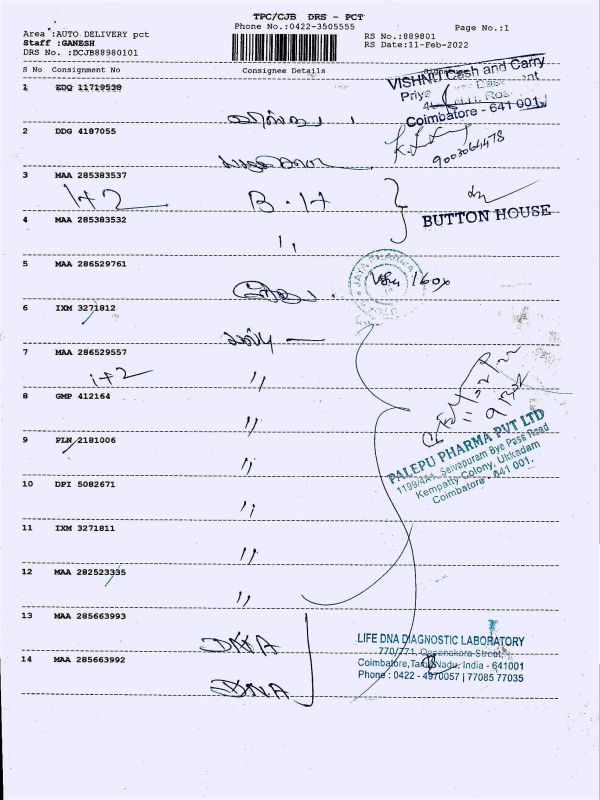 TPC/CJB DRS - PCT
Phone No.:0422-3505555
Page No.:1
Area :AUTO DELIVERY pct
Staff :GANESH
DRS No. :DCJB88980101
RS No.:889801
RS Date:11-Feb-2022
S No Consignment No Consignee Details
1 EDQ 11719538
VISHNU Cash and Carry
Priya
Coimbatore - 641 001.
2 DDG 4187055
9003064478
3 MAA 285383537
1+2 B.H
BUTTON HOUSE
4 MAA 285383532
"
5 MAA 286529761
JAYA PHARMA
6 IXM 3271812
7 MAA 286529557
1+2 "
8 GMP 412164
"
9 PLN 2181006
"
PALEPU PHARMA PVT LTD
1199/4A1, Selvapuram Bye Pass Road
Kempatty Colony, Ukkadam
Coimbatore - 641 001.
10 DPI 5082671
"
11 IXM 3271811
"
12 MAA 282523335
"
13 MAA 285663993
DNA
LIFE DNA DIAGNOSTIC LABORATORY
770/771, Oppanakara Street,
Coimbatore, Tamil Nadu, India - 641001
Phone : 0422 - 4970057 | 77085 77035
14 MAA 285663992
DNA